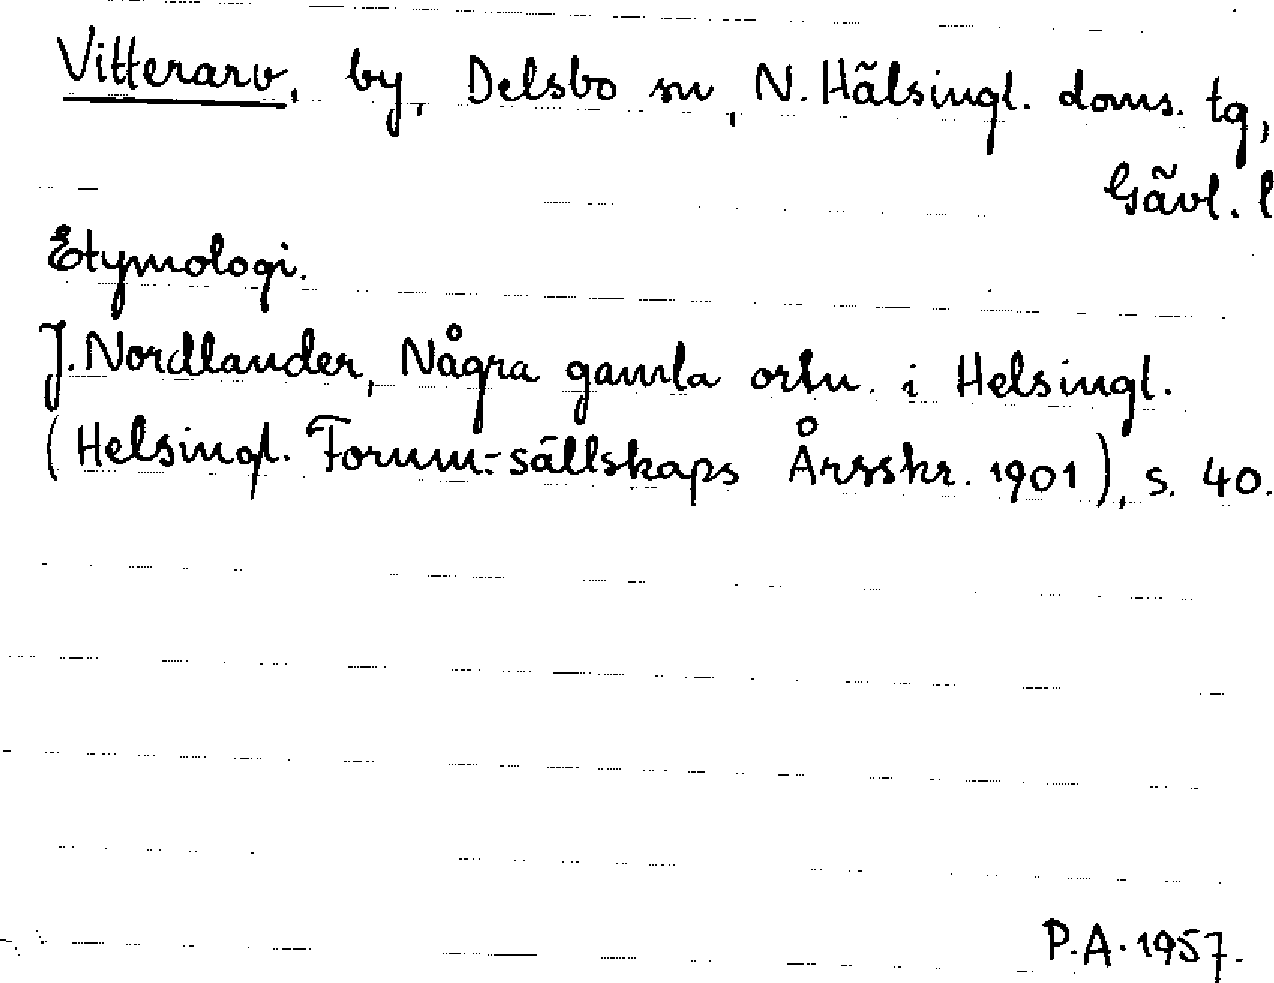 Vitterarv, by, Delsbo sn, N. Hälsingl. doms. tg,
Gävl. l
Etymologi.
J. Nordlander, Några gamla ortn. i Helsingl.
(Helsingl. Fornm.-sällskaps Årsskr. 1901), s. 40.
P.A. 1957.